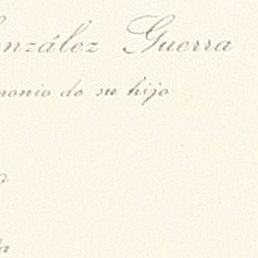 onzález Guerra
monio de su hijo